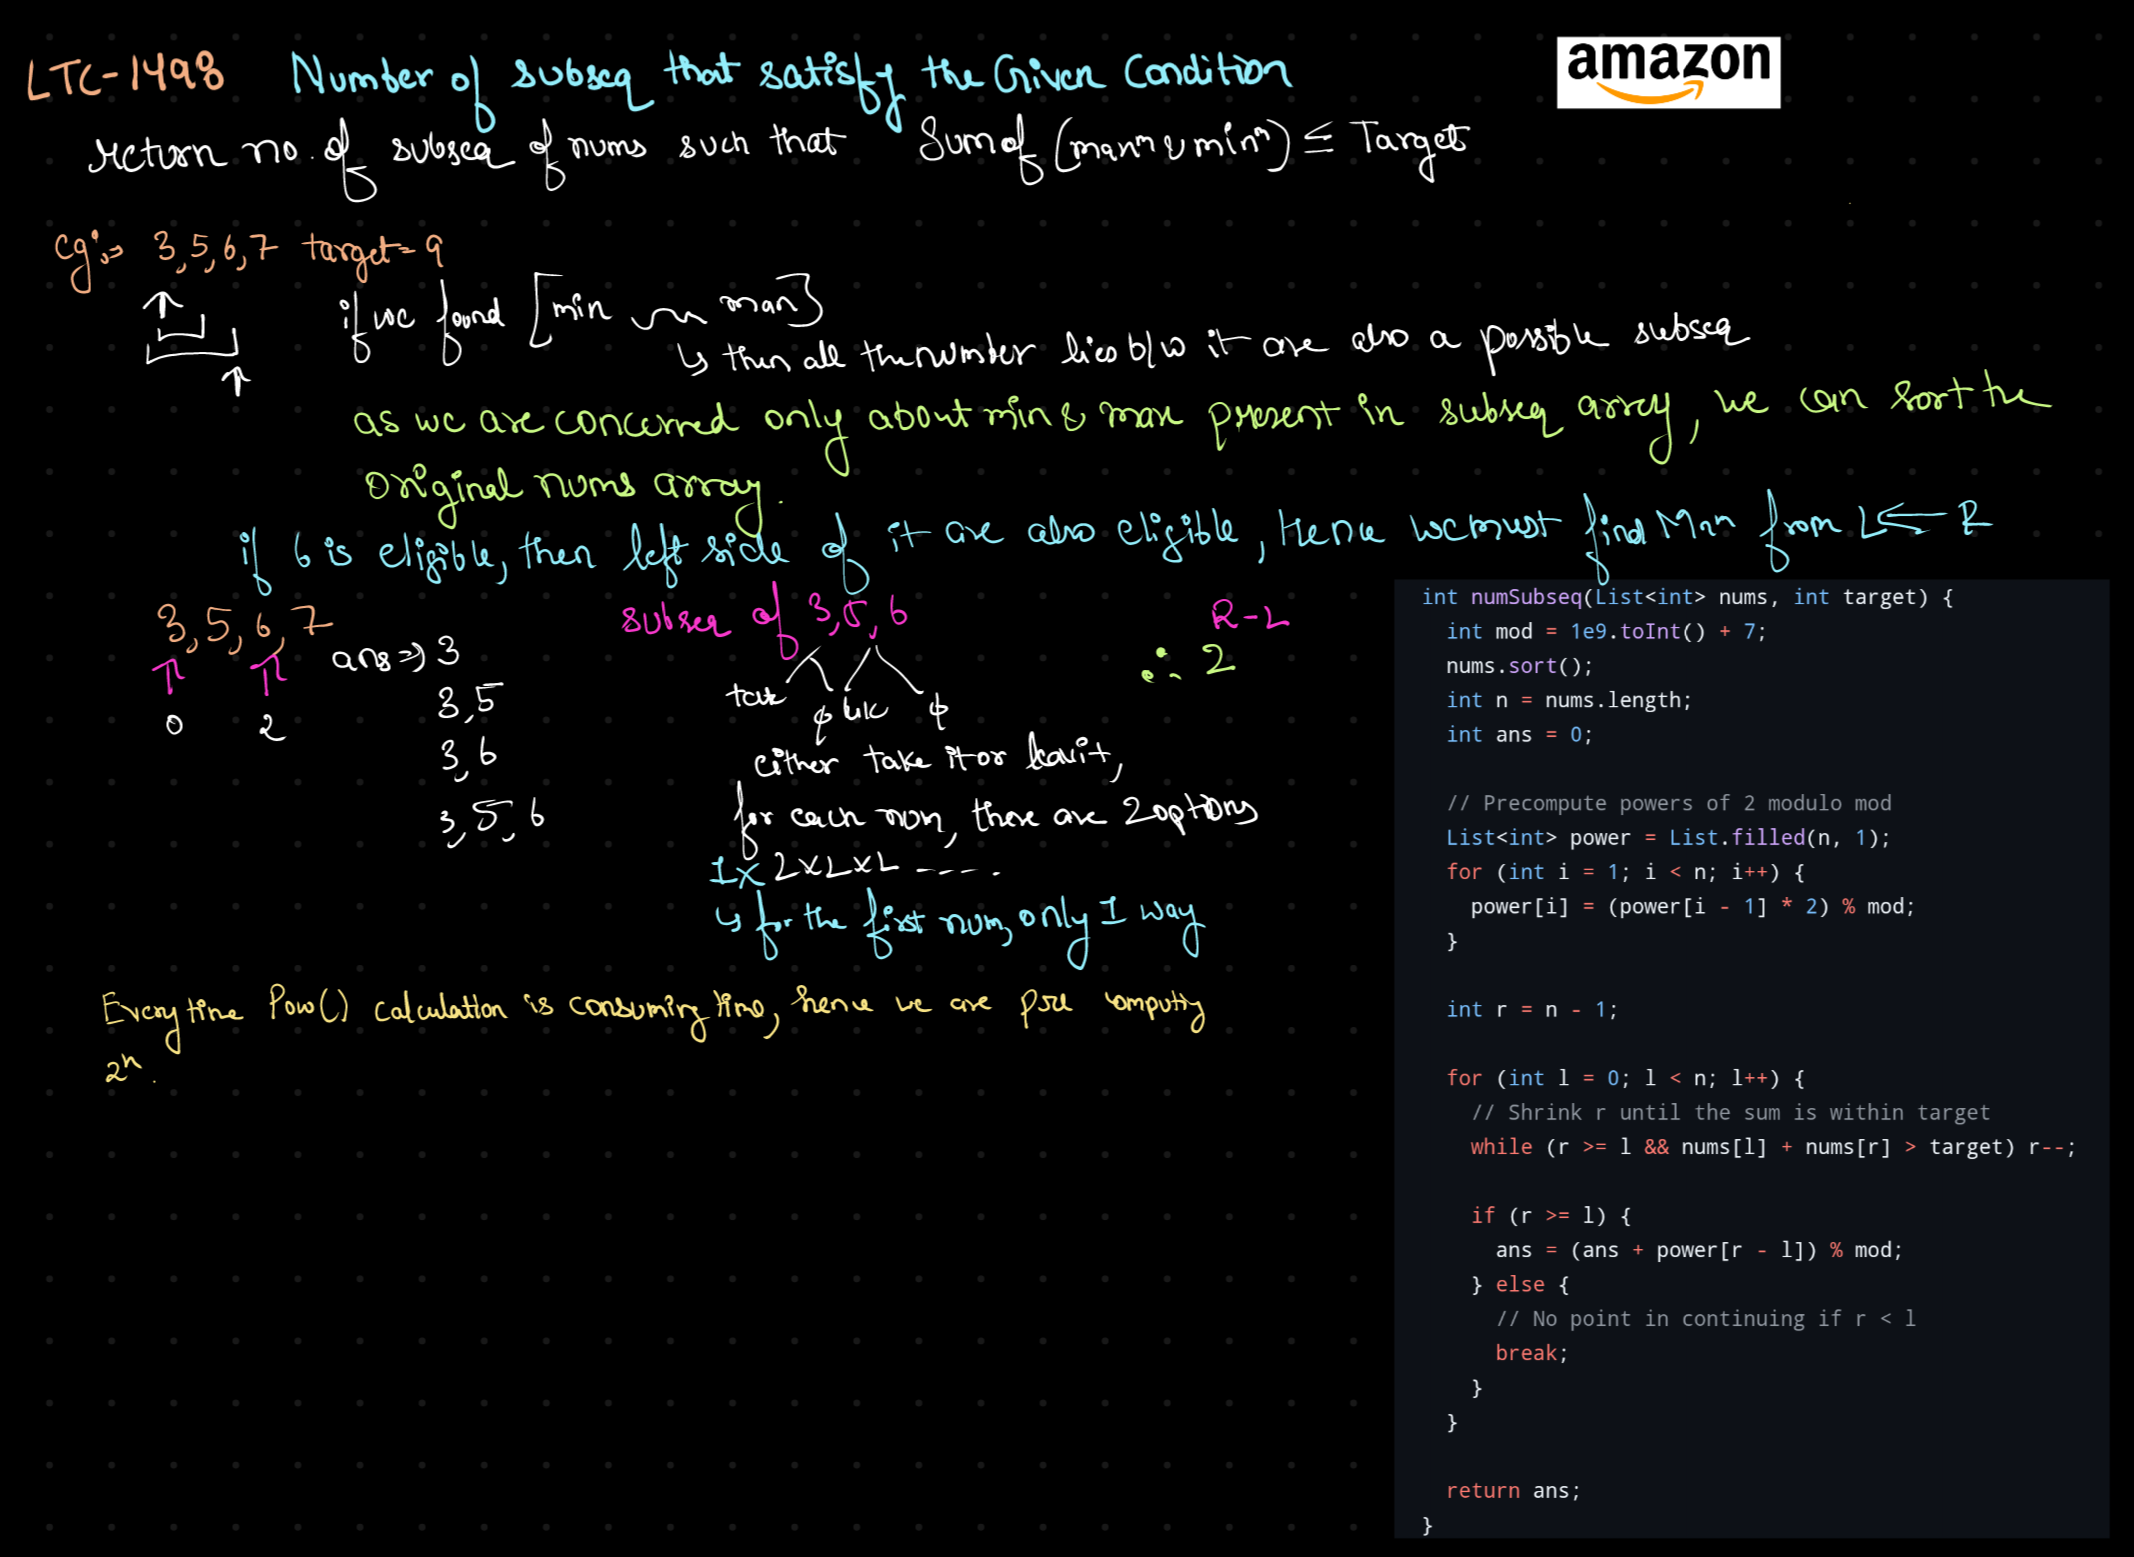 LTC-1498 Number of subseq that satisfy the Given Condition
amazon
return no. of subseq of nums such that Sum of (maxᵐ & minᵐ) ≤ Target
eg:→ 3,5,6,7 target=9
if we found [min ~ max]
↳ then all the number lies b/w it are also a possible subseq
as we are concerned only about min & max present in subseq array, we can sort the
original nums array.
if 6 is eligible, then left side of it are also eligible, Hence we must find Max from L ⇐ R
3,5,6,7
0 2
ans => 3
3,5
3,6
3,5,6
subseq of 3,5,6
take ϕ take ϕ
either take it or leav it,
for each num, there are 2 options
1 x 2x2x2 ----.
↳ for the first num, only 1 way
R-L
∴ 2
Every time Pow() calculation is consuming time, hence we are pre computing
2ⁿ.
int numSubseq(List<int> nums, int target) {
int mod = 1e9.toInt() + 7;
nums.sort();
int n = nums.length;
int ans = 0;
// Precompute powers of 2 modulo mod
List<int> power = List.filled(n, 1);
for (int i = 1; i < n; i++) {
power[i] = (power[i - 1] * 2) % mod;
}
int r = n - 1;
for (int l = 0; l < n; l++) {
// Shrink r until the sum is within target
while (r >= l && nums[l] + nums[r] > target) r--;
if (r >= l) {
ans = (ans + power[r - l]) % mod;
} else {
// No point in continuing if r < l
break;
}
}
return ans;
}